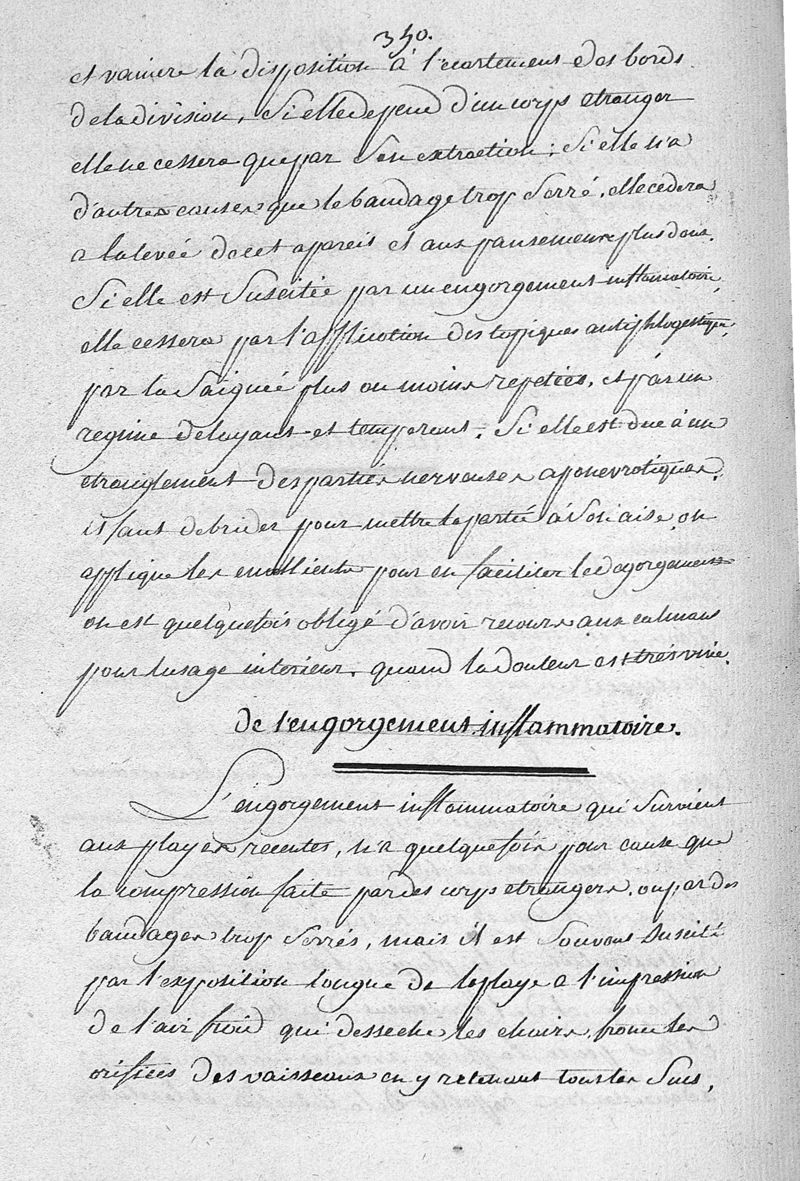 340.
et vaincre la disposition à l'ecartement des bords
de la division, Si elle depend d'un corps etranger
elle ne cessera que par Son extraction; Si elle n'a
d'autres causes que le bandage trop Serré, elle cedera
a la levée de cet apareil et aux pansemens plus doux.
Si elle est Suscitée par un engorgement inflammatoire,
elle cessera par l'application des topiques antiphlogestiques,
par la Saignée plus ou moins repetées, et par un
regime delayant et temperant. Si elle est due à un
etranglement des parties nerveuses aponevrotiques,
il faut debrider pour mettre la partie à Son aise, on
applique les emollients pour en faciliter le degorgement
on est quelquefois obligé d'avoir recours aux calmans
pour lusage interieur, quand la douleur est très vive.
de l'engorgement inflammatoire.
L'engorgement inflammatoire qui Survient
aux playes recentes, n'a quelquefois pour cause que
la compression faite par des corps etrangers, ou par des
bandages trop Serrés, mais il est Souvent Suscité
par l'exposition longue de la playe a l'impression
de l'air froid qui desseche les chairs, fronce les
orifices des vaisseaux en y retenant tous les Sucs,